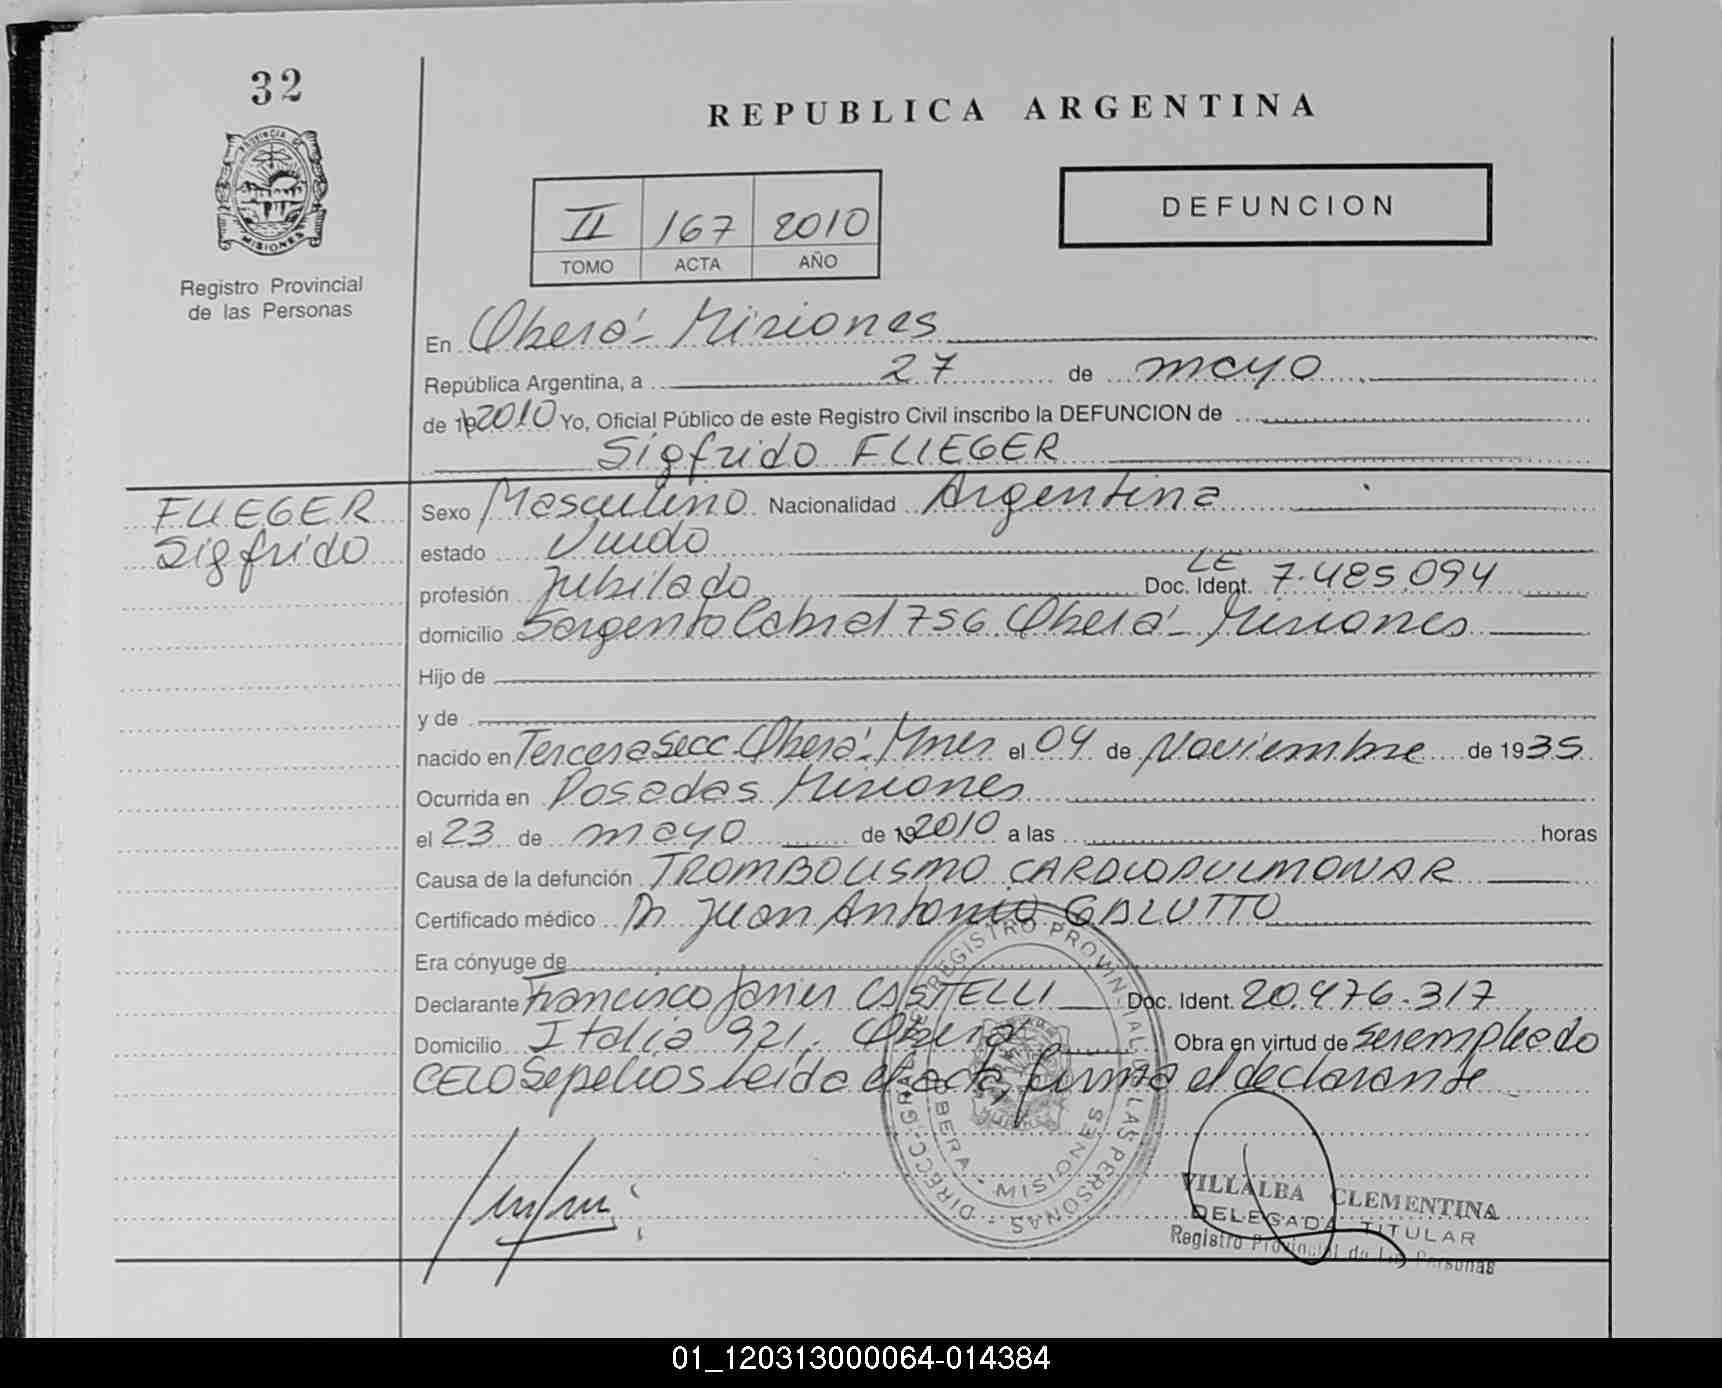 32
REPUBLICA ARGENTINA
PROVINCIA DE
MISIONES
DEFUNCION
II 167 2010
TOMO ACTA AÑO
Registro Provincial
de las Personas
En Oberá - Misiones
República Argentina, a 27 de mayo
de 19 2010 Yo, Oficial Público de este Registro Civil inscribo la DEFUNCION de
Sigfrido FLIEGER
FLIEGER
Sigfrido
Sexo Masculino Nacionalidad Argentina
estado Viudo
profesión Jubilado Doc. Ident. LE 7.485.094
domicilio Sargento Cabral 756 Oberá - Misiones
Hijo de
y de
nacido en Tercera Secc. Oberá - Mnes el 04 de Noviembre de 1935
Ocurrida en Posadas Misiones
el 23 de mayo de 19 2010 a las horas
Causa de la defunción TROMBOLISMO CARDIOPULMONAR
Certificado médico Dr Juan Antonio GALUTTO
Era cónyuge de
Declarante Francisco Javier CASTELLI Doc. Ident. 20.476.317
Domicilio Italia 921. Oberá Obra en virtud de ser empleado
CELO Sepelios Leida el acta, firma el declarante
DIRECC. GRAL. DEL REGISTRO PROVINCIAL DE LAS PERSONAS
OBERA - MISIONES
VILLALBA CLEMENTINA
DELEGADA TITULAR
Registro Provincial de Las Personas
01_120313000064-014384